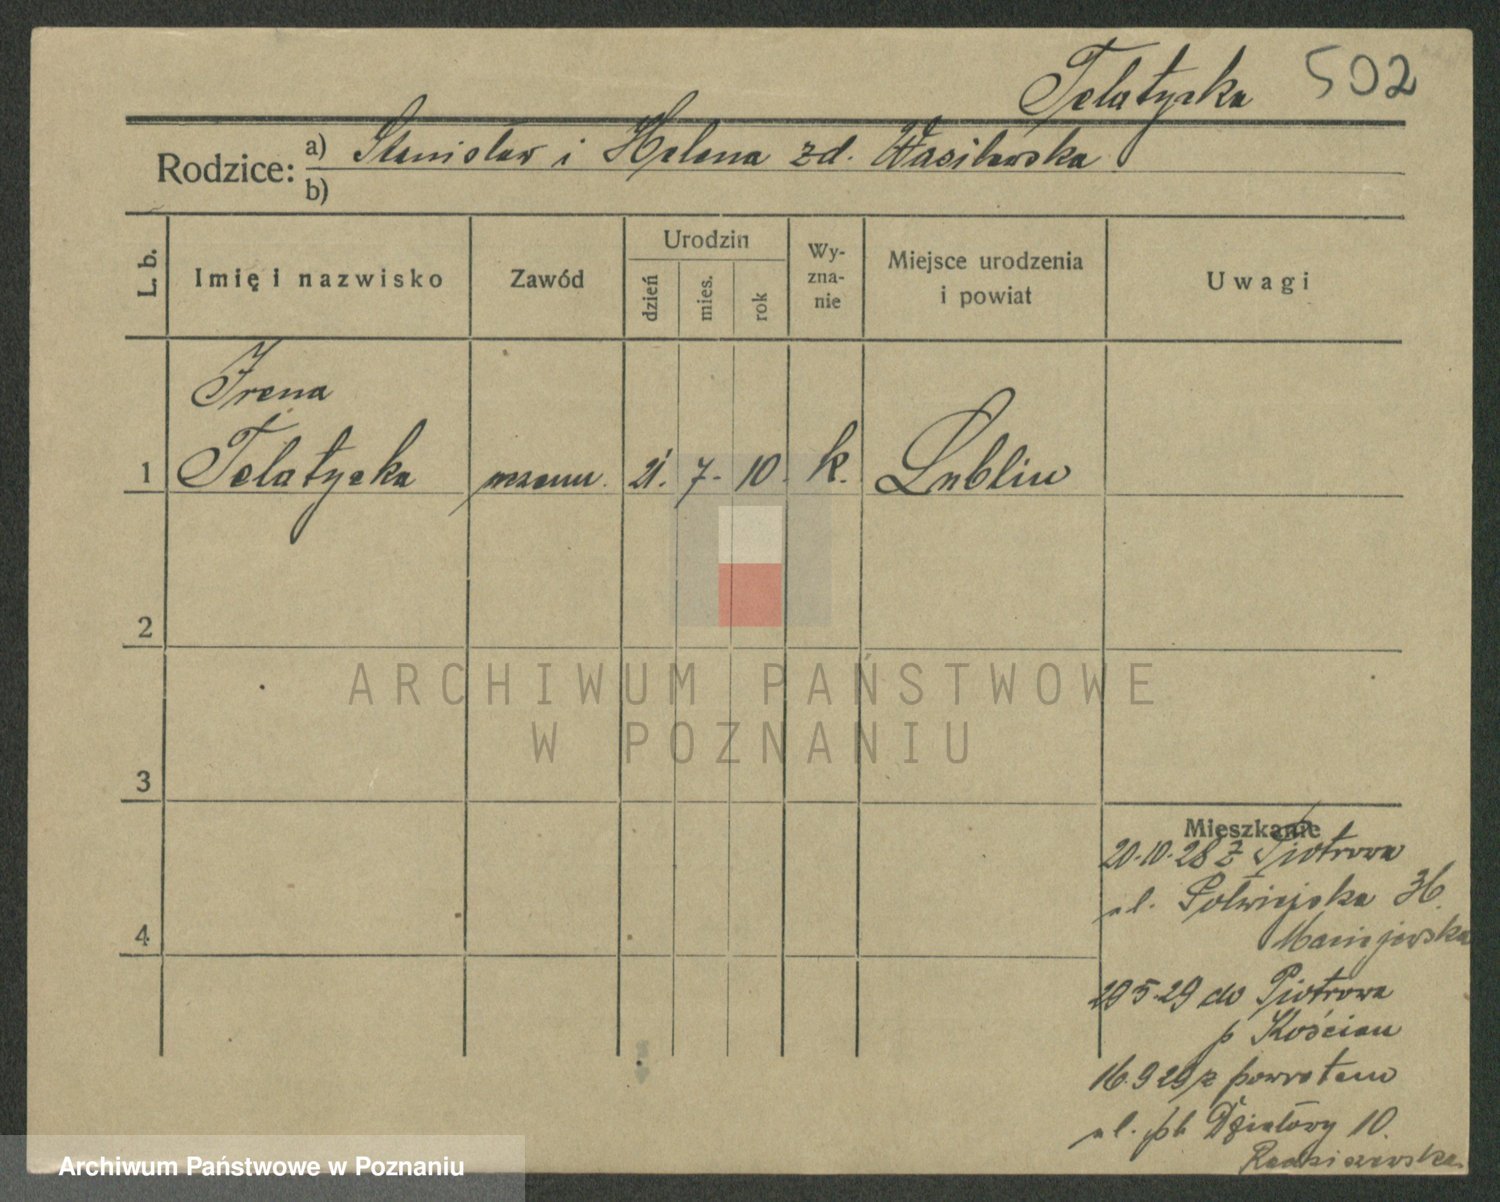 Telatycka 502
Rodzice: a) Stanisław i Helena zd. Wasilewska
b)
L. b.
Imię i nazwisko
Zawód
Urodzin
dzień
mies.
rok
Wy-
zna-
nie
Miejsce urodzenia
i powiat
Uwagi
Irena
1 Telatycka uczenn. 21. 7. 10. k. Lublin
2
3
4
ARCHIWUM PAŃSTWOWE
W POZNANIU
Mieszkanie
20.10.28 z Piotrowa
ul. Półwiejska 36.
Maciejewska
29 5.29 do Piotrowa
p Kościan
16.9 29 z powrotem
ul. pl. Działowy 10.
Radziszewska
Archiwum Państwowe w Poznaniu